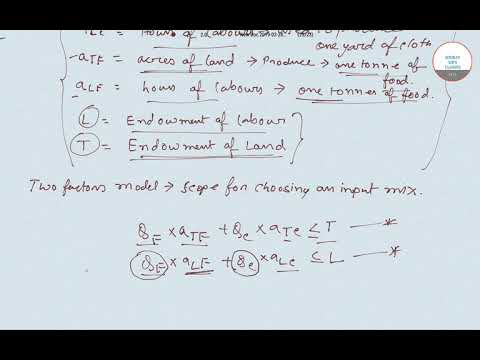 aLc = Hours of Labours
one yard of cloth
- aTF = acres of land → Produce → one tonne of food.
aLF = hours of Labours → one tonnes of food.
L = Endowment of Labour
T = Endowment of Land
Two factors model → scope for choosing an input mix.
QF × aTF + Qc × aTc ≤ T —*
QF × aLF + Qc × aLc ≤ L —*